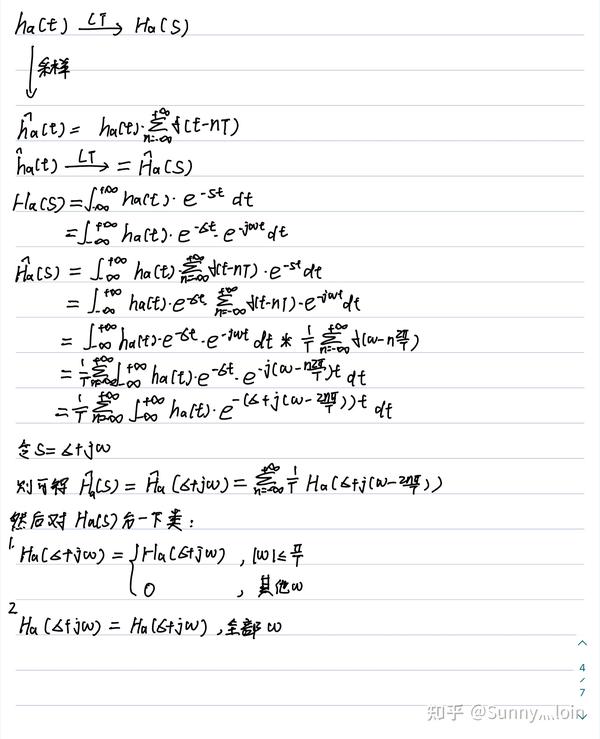 ha(t) —LT→ Ha(s)
↓采样
ĥa(t) = ha(t)·∑_{n=-∞}^{+∞} δ(t-nT)
ĥa(t) —LT→ = Ĥa(s)
Ha(s) = ∫_{-∞}^{+∞} ha(t)·e^{-st} dt
= ∫_{-∞}^{+∞} ha(t)·e^{-σt}·e^{-jωt} dt
Ĥa(s) = ∫_{-∞}^{+∞} ha(t)·∑_{n=-∞}^{+∞} δ(t-nT)·e^{-st} dt
= ∫_{-∞}^{+∞} ha(t)·e^{-σt} ∑_{n=-∞}^{+∞} δ(t-nT)·e^{-jωt} dt
= ∫_{-∞}^{+∞} ha(t)·e^{-σt}·e^{-jωt} dt * 1/T ∑_{n=-∞}^{+∞} δ(ω-n 2π/T)
= 1/T ∑_{n=-∞}^{+∞} ∫_{-∞}^{+∞} ha(t)·e^{-σt}·e^{-j(ω-n 2π/T)t} dt
= 1/T ∑_{n=-∞}^{+∞} ∫_{-∞}^{+∞} ha(t)·e^{-(σ+j(ω-2nπ/T))t} dt
令s=σ+jω
则可得 Ĥa(s) = Ĥa(σ+jω) = ∑_{n=-∞}^{+∞} 1/T Ha(σ+j(ω-2nπ/T))
然后对 Ha(s) 分一下类:
1. Ha(σ+jω) = { Ha(σ+jω) , |ω|≤π/T
0 , 其他ω
2 Ha(σ+jω) = Ha(σ+jω) ,全部 ω
4
/
7
知乎 @Sunny...loin